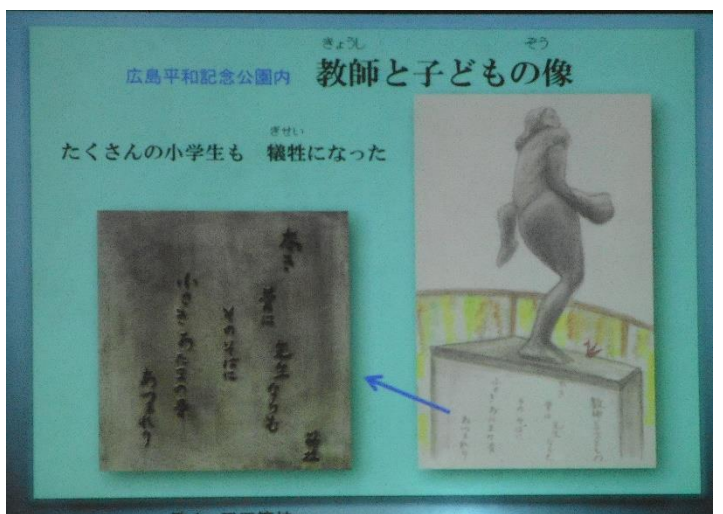 きょうし ぞう
広島平和記念公園内 教師と子どもの像
ぎせい
たくさんの小学生も 犠牲になった
太き
骨は 先生ならむ
そのそばに
小さきあたまの骨
あつまれり